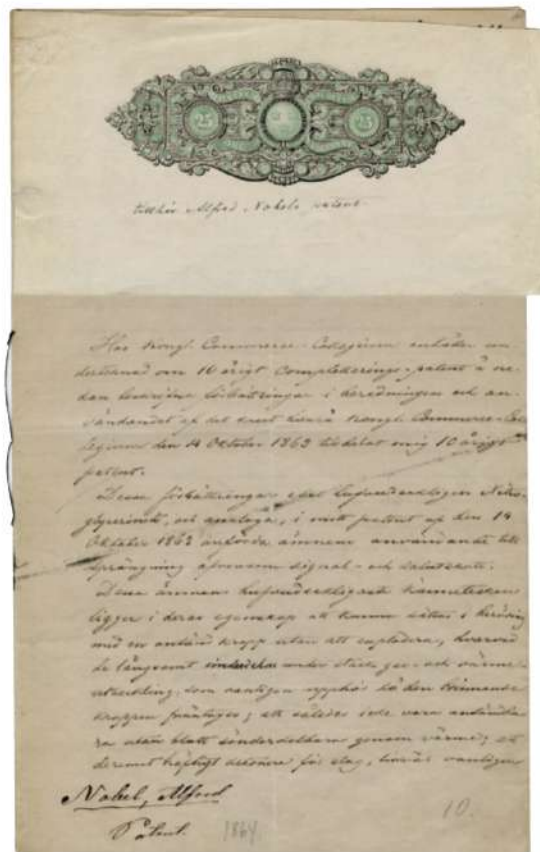 25 25
tillhör Alfred Nobels patent
Hos Kongl. Commerce-Collegium anhåller un
dertecknad om 10 årigt completerings-patent å ne
dan beskrifne förbättringar i beredningen och an
vändandet af det krut hvarå Kongl. Commerce-Col
legium den 14 Oktober 1863 tilldelat mig 10 årigt
patent.
Dessa förbättringar afse hufvudsakligen Nitro
glycerinets, och analoga, i mitt patent af den 14
Oktober 1863 anförda ämnens användande till
sprängning äfvensom signal- och salutskott.
Dessa ämnens hufvudsakligaste kännetecken
ligger i deras egenskap att kunna sättas i beröring
med en antänd kropp utan att explodera, hvarvid
de långsamt sönderdelas under stark gas- och värme
utveckling, som vanligen upphör då den brinnande
kroppen fråntages; att således icke vara antändba
ra utan blott sönderdelbara genom värme; att
deremot häftigt detonera för slag, hvarvid vanligen
Nobel, Alfred
Patent. 1864
10.